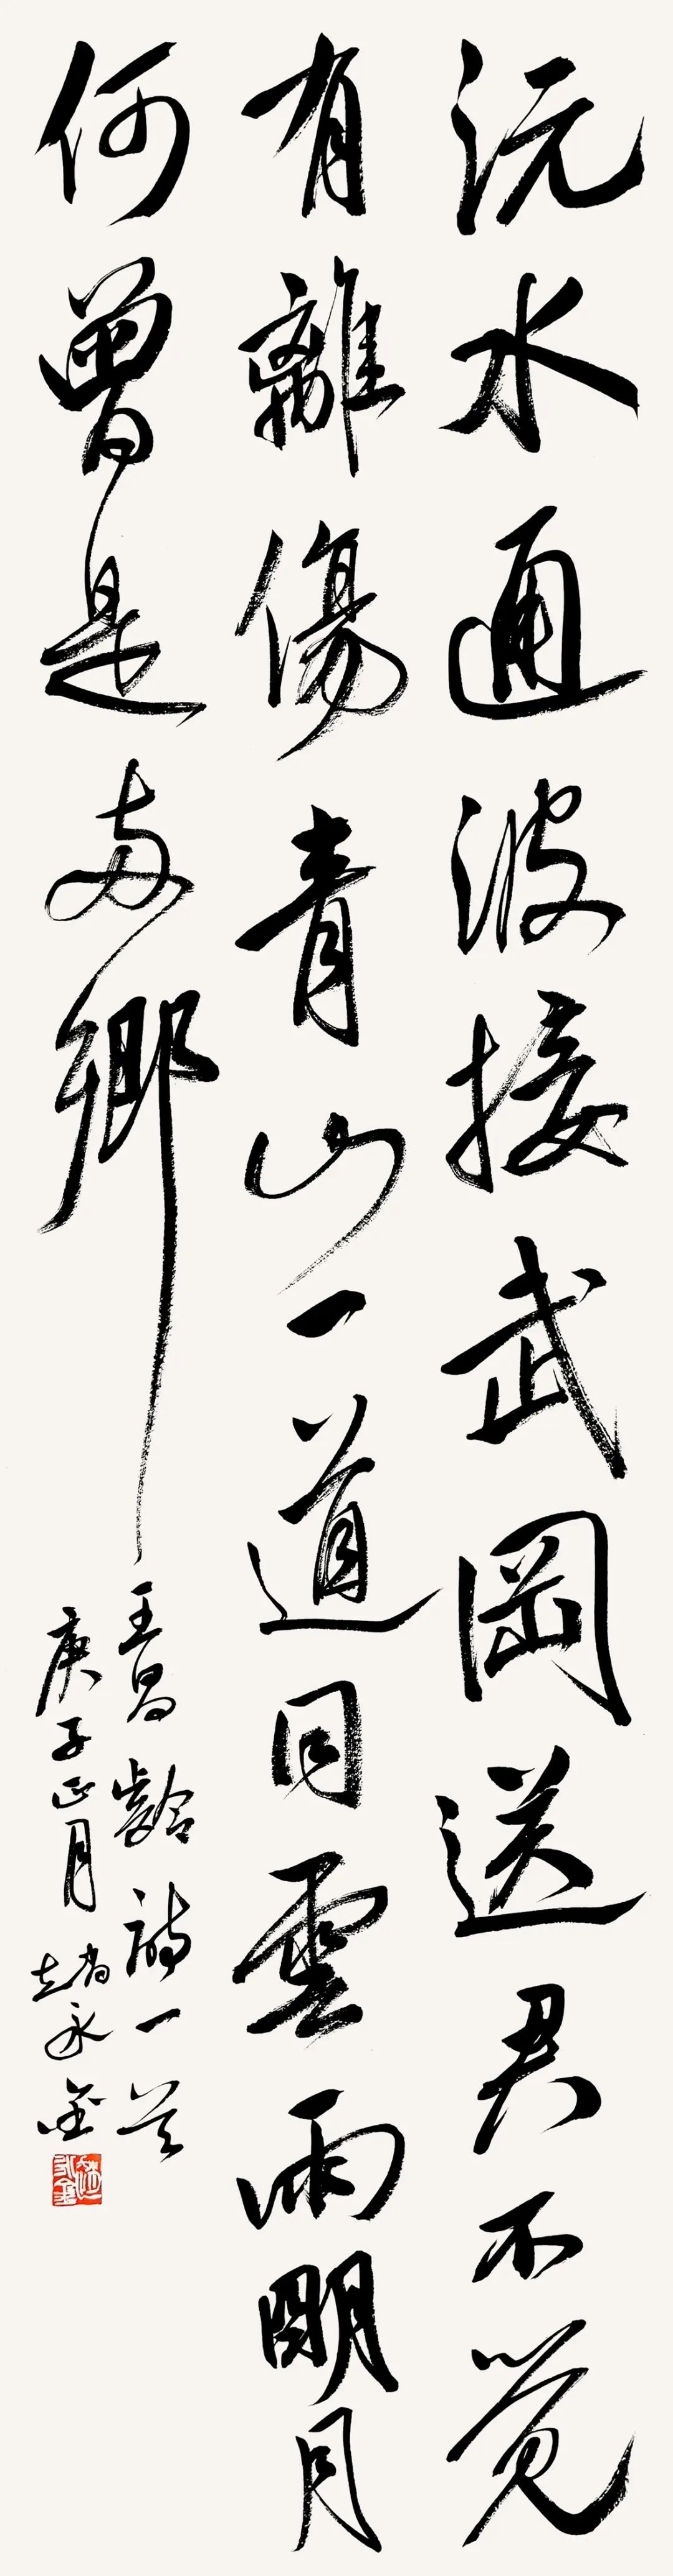 沅水通波接武岡送君不觉
有離傷青山一道同雲雨明月
何曾是兩鄉
王昌齡詩一首
庚子正月趙永金